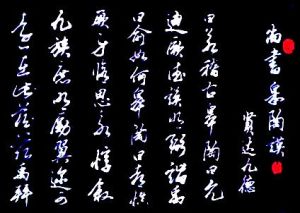 尚書皋陶謨
賢達九德
曰若稽古皋陶曰允
迪厥德謨明弼諧禹
曰俞如何皋陶曰都慎
厥身修思永惇敘
九族庶明勵翼邇可
遠在茲